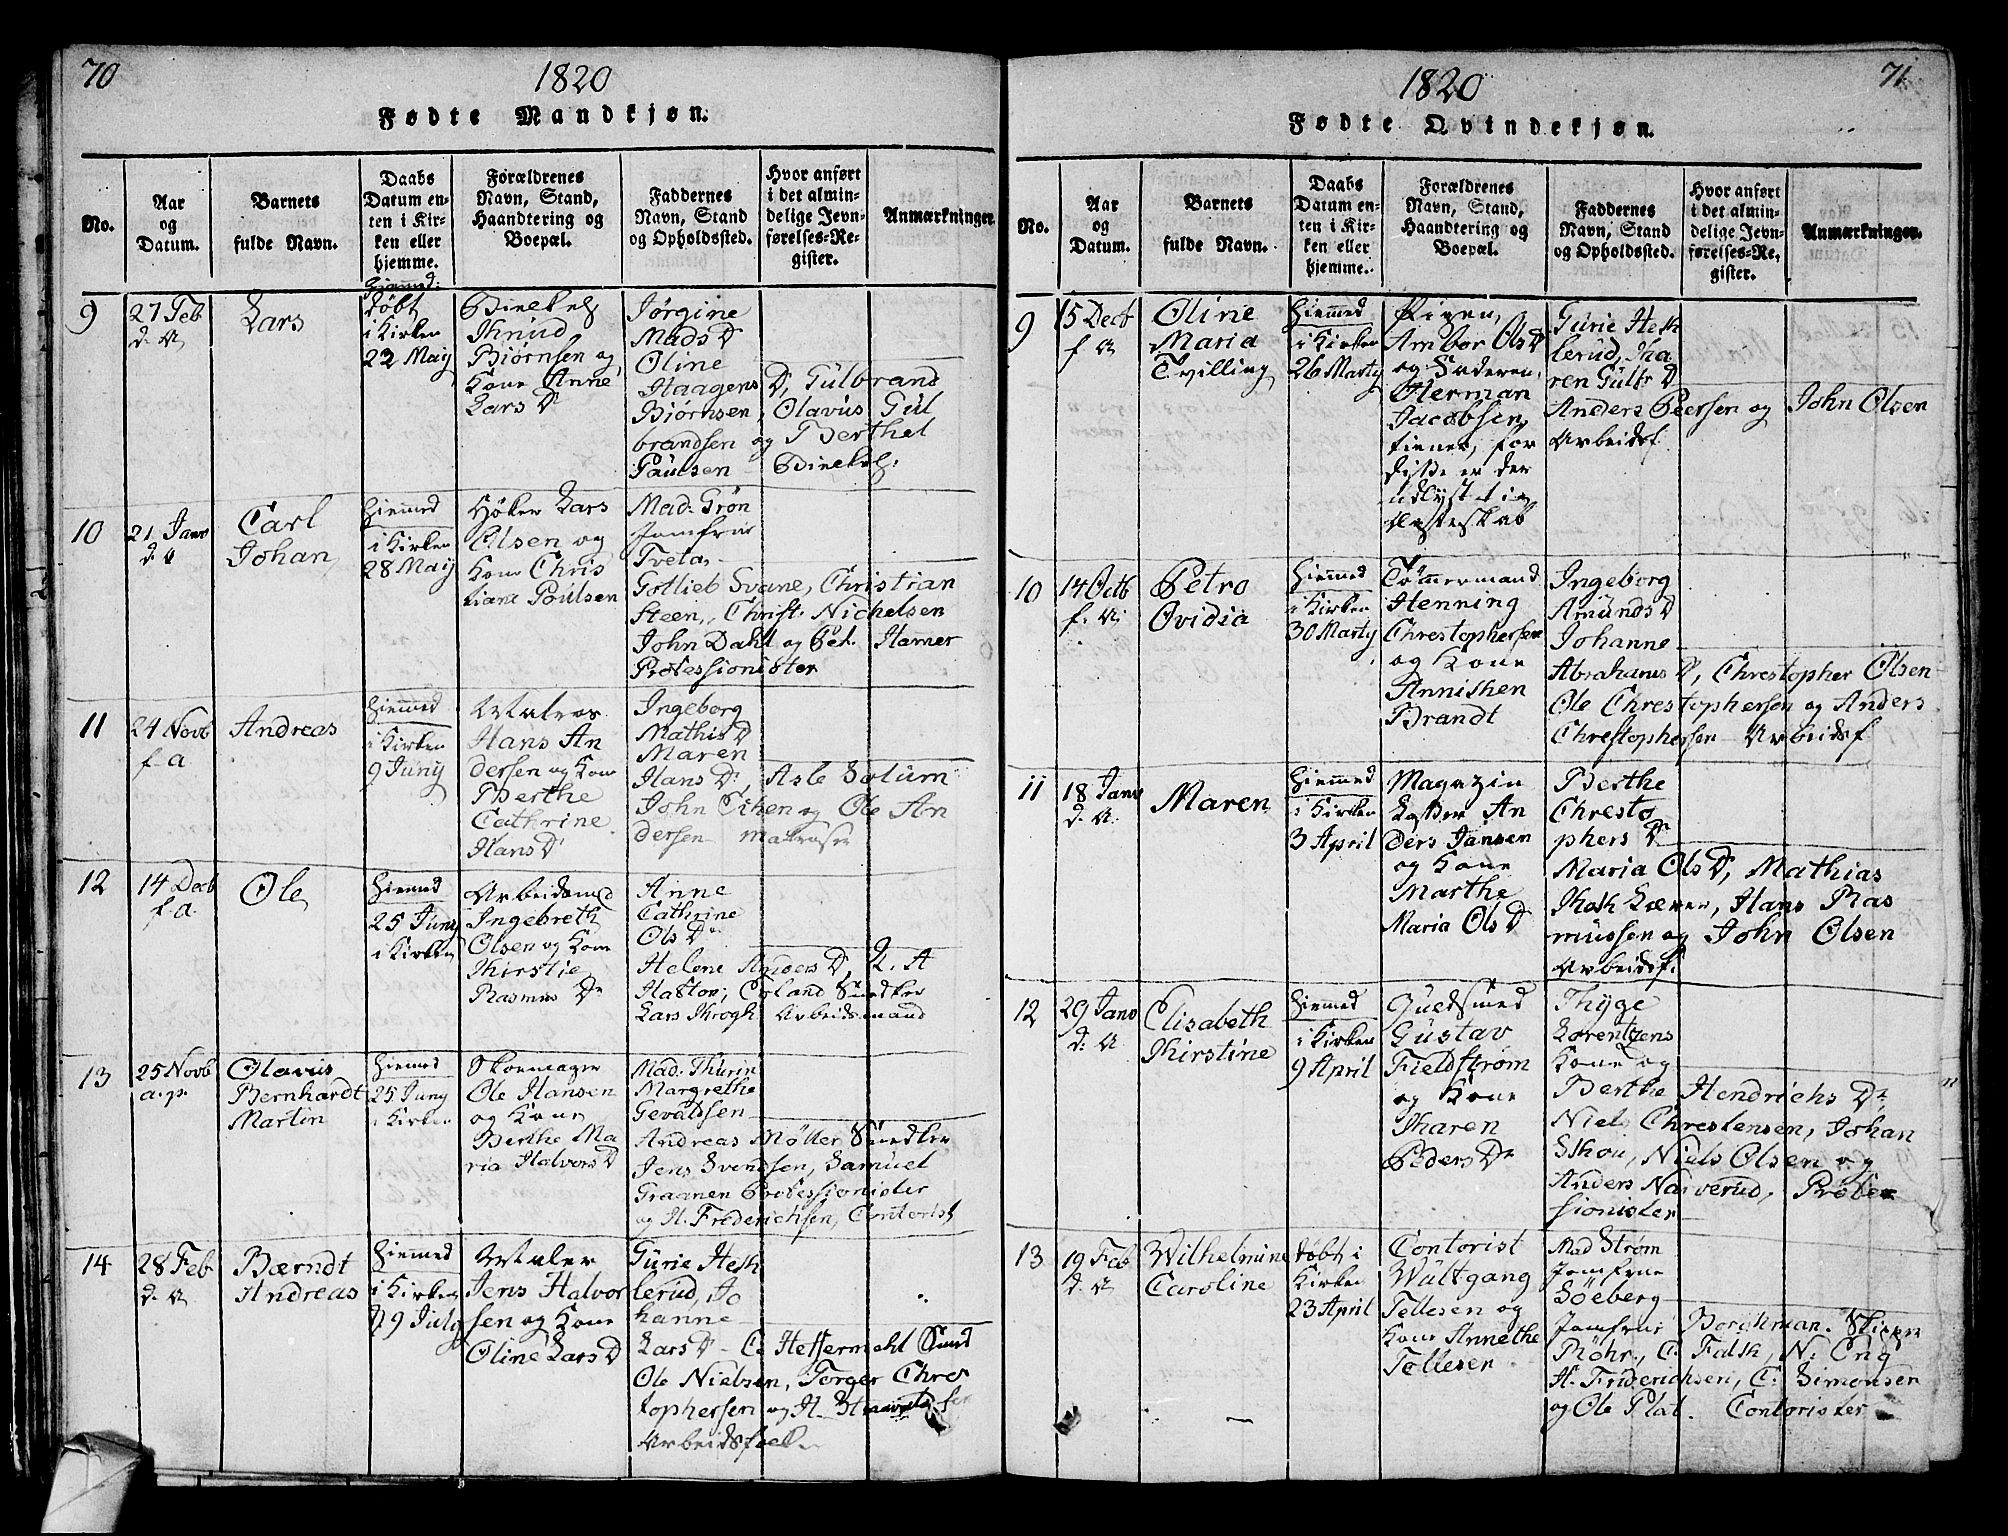 70
1820
Fødte Mandkjøn.
No.
Aar
og
Datum.
Barnets
fulde Navn.
Daabs
Datum en-
ten i Kir-
ken eller
hjemme.
Forældrenes
Navn, Stand,
Haandtering og
Boepæl.
Faddernes
Navn, Stand
og Opholdssted.
Hvor anført
i det almin-
delige Jevn-
førelses-Re-
gister.
Anmærkninger.
9
27 Feb
d. A
Lars
Hiemmed:
døbt
i Kirken
22 Maij
Knud
Biørnsen og
Kone Anne
Lars D
Jørgine
Mads D
Oline
Haagens D, Gulbrand
Biørnsen, Olavus Gul
brandsen og Berthel
Paulsen
10
21 Janv
d. A
Carl
Johan
Hiemmed
i Kirken
28 Maij
Høker Lars
Olsen og
Kone Chris
tiane Poulsen
Mad. Grøn
Jomfrue
Tveta
Gotlieb Svane, Christian
Steen, Christ. Nichelsen
John Dahl og Ped. Hamer
Professionister
11
24 Novb
f. a
Andreas
Hiemmed
i Kirken
9 Junij
Matros
Hans An
dersen og Kone
Berthe
Cathrine
Hans D
Ingeborg
Mathis D
Maren
Hans D, Asle Solum
John Eiken og Ole An
dersen matroser
12
14 Decb
f. a.
Ole
Hiemmed
25 Junij
i Kirken
Arbeidsmd
Ingebreth
Olsen og Kone
Kirstie
Rasmus Dr
Anne
Cathrine
Ols Dr
Helene Anders D, L. A
Hastor, Eoland Snedker
Lars Krogh Arbeidsmand
13
25 Novb
a. p.
Olavus
Bernhardt
Martin
Hiemmed
25 Junij
i Kirken
Skoemager
Ole Hansen
og Kone
Berthe Ma
ria Halvors D
Mad. Thurin
Margrethe
Gevaldsen
Andreas Møller Snedker
Jens Svendsen, Samuel
Graanen Professionister
og H. Frederichsen, Contorist
14
28 Feb
d. A
Bærndt
Andreas
Hiemmed
i Kirken
9 July
Maler
Jens Halvor
sen og Kone
Oline Lars D
Gurie Hesk
lerud, Jo
hanne
Lars D - C. Heffermehl Smd
Ole Nielsen, Torger Chres
tophersen og H.
Arbeidsfolk
71
1820
Fødte Qvindekjøn.
No.
Aar
og
Datum.
Barnets
fulde Navn.
Daabs
Datum en-
ten i Kir-
ken eller
hjemme.
Forældrenes
Navn, Stand,
Haandtering og
Boepæl.
Faddernes
Navn, Stand
og Opholdssted.
Hvor anført
i det almin-
delige Jevn-
førelses-Re-
gister.
Anmærkninger.
9
15 Decb
f. A
Oline
Maria
Tvilling
Hiemmed
i Kirken
26 Marty
Pigen,
Ambor Ols D
og Faderen,
Herman
Jacobsen
tiener, for
disse er der
udlyst til
Ægteskab
Gurie Hesk
lerud, Ka
ren Gulbr D
Anders Peersen og John Olsen
Arbeidsf.
10
14 Octb
f. A
Petro
Ovidia
Hiemmed
i Kirken
30 Marty
Tømmermand
Henning
Chrestophersen
og Kone
Annichen
Brandt
Ingeborg
Amunds D
Johanne
Abrahams D, Chrestopher Olsen
Ole Chrestophersen og Anders
Chrestophersen Arbeidsf
11
18 Janv
d. A.
Maren
Hiemmed
i Kirken
3 April
Magazin
An
ders Jansen
og Kone
Marthe
Maria Ols D
Berthe
Chresto
phers Dr
Maria Ols D, Mathias
Hans Ras
mussen og John Olsen
Arbeidsf.
12
29 Janv
d. A
Elisabeth
Kirstine
Hiemmed
i Kirken
9 April
Guldsmed
Gustav
Fieldstrøm
og Kone
Karen
Peders Dr
Thyge
Lorentzens
Kone og
Berthe Hendrichs Dr,
Niels Chrestensen, Johan
Skou, Niels Olsen og
Anders Narverud, Profes
sionister
13
19 Feb
d. A
Wilhelmine
Caroline
døbt i
Kirken
23 April
Contorist
Wulfgang
Tellesen og
Kone Annethe
Tollesen
Mad Strøm
Jomfrue
Søeberg
Jomfrue Borchman. Skipper
Röhr, C. Falsk, N. Eng
H. Friderichsen, C. Simonsen
og Ole Plat. Contorister